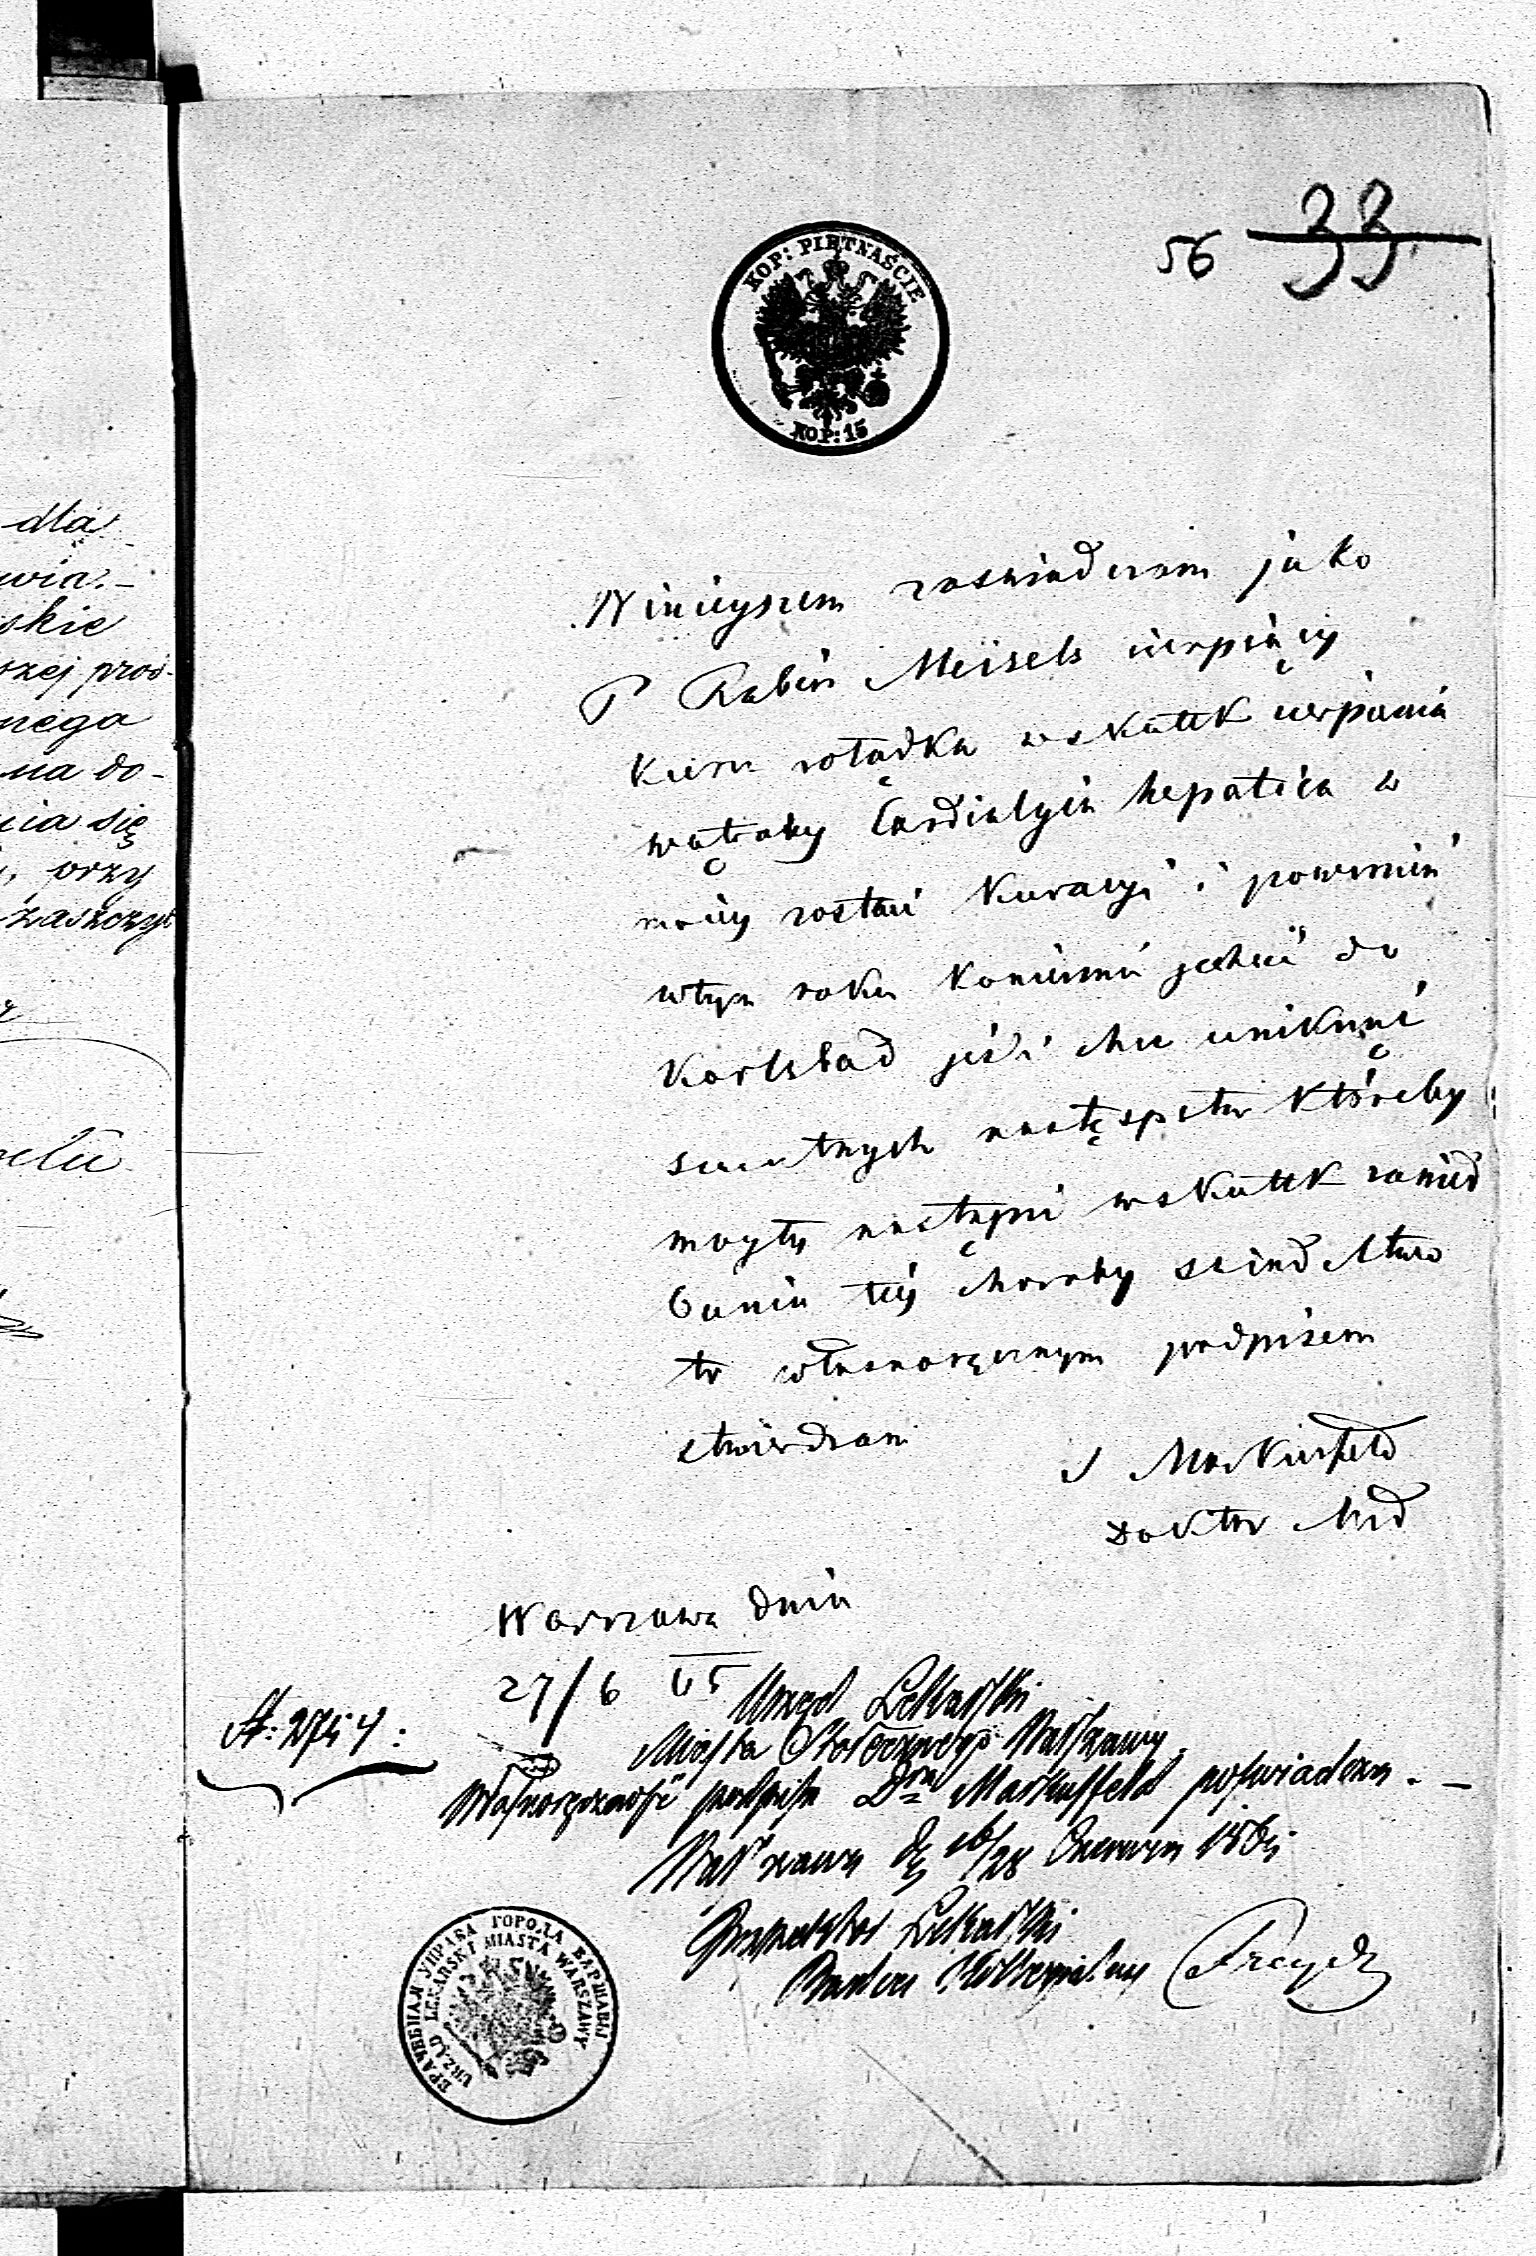 56 33
KOP: PIĘTNAŚCIE
KOP: 15
dla
wia.
skie
szej proś-
nego
na do-
cia się
przy
zaszczyt
Niniejszem zaswiadczam jako
P Rabin Meisels cierpiący
Kurcz rołądka wskutek cierpienia
wątroby Cardialgia hepatica w
moiey zostaie Kuracyi i powinien
wtym roku Koniecznie jechać do
Karlsbad jeśli chce uniknąć
smutnych następstw któreby
mogły nastąpić wskutek zanied
bania tej choroby swiadectwo
to własnoręcznym podpisem
stwierdzam
J Markusfeld
Doktor Med
Warszawa dnia
27/6 65
Urząd Lekarski
Miasta Stołecznego Warszawy.
№: 2754:
Własnoręczność podpisu Dra Markusfeld poświadcza. —
Warszawa d. 16/28 Czerwca 1865
Inspektor Lekarski
Radca Kollegialny
ВРАЧЕБНАЯ УПРАВА ГОРОДА ВАРШАВЫ
URZĄD LEKARSKI MIASTA WARSZAWY